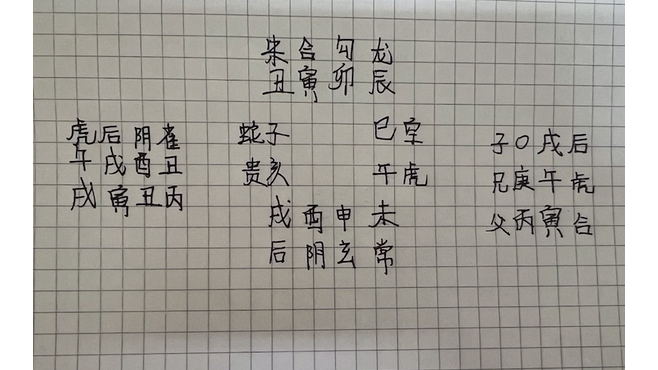 朱合勾龙
丑寅卯辰
虎后阴雀
午戌酉丑
戌寅丑丙
蛇子 巳空
贵亥 午虎
戌酉申未
后阴玄常
子〇戌后
兄庚午虎
父丙寅合